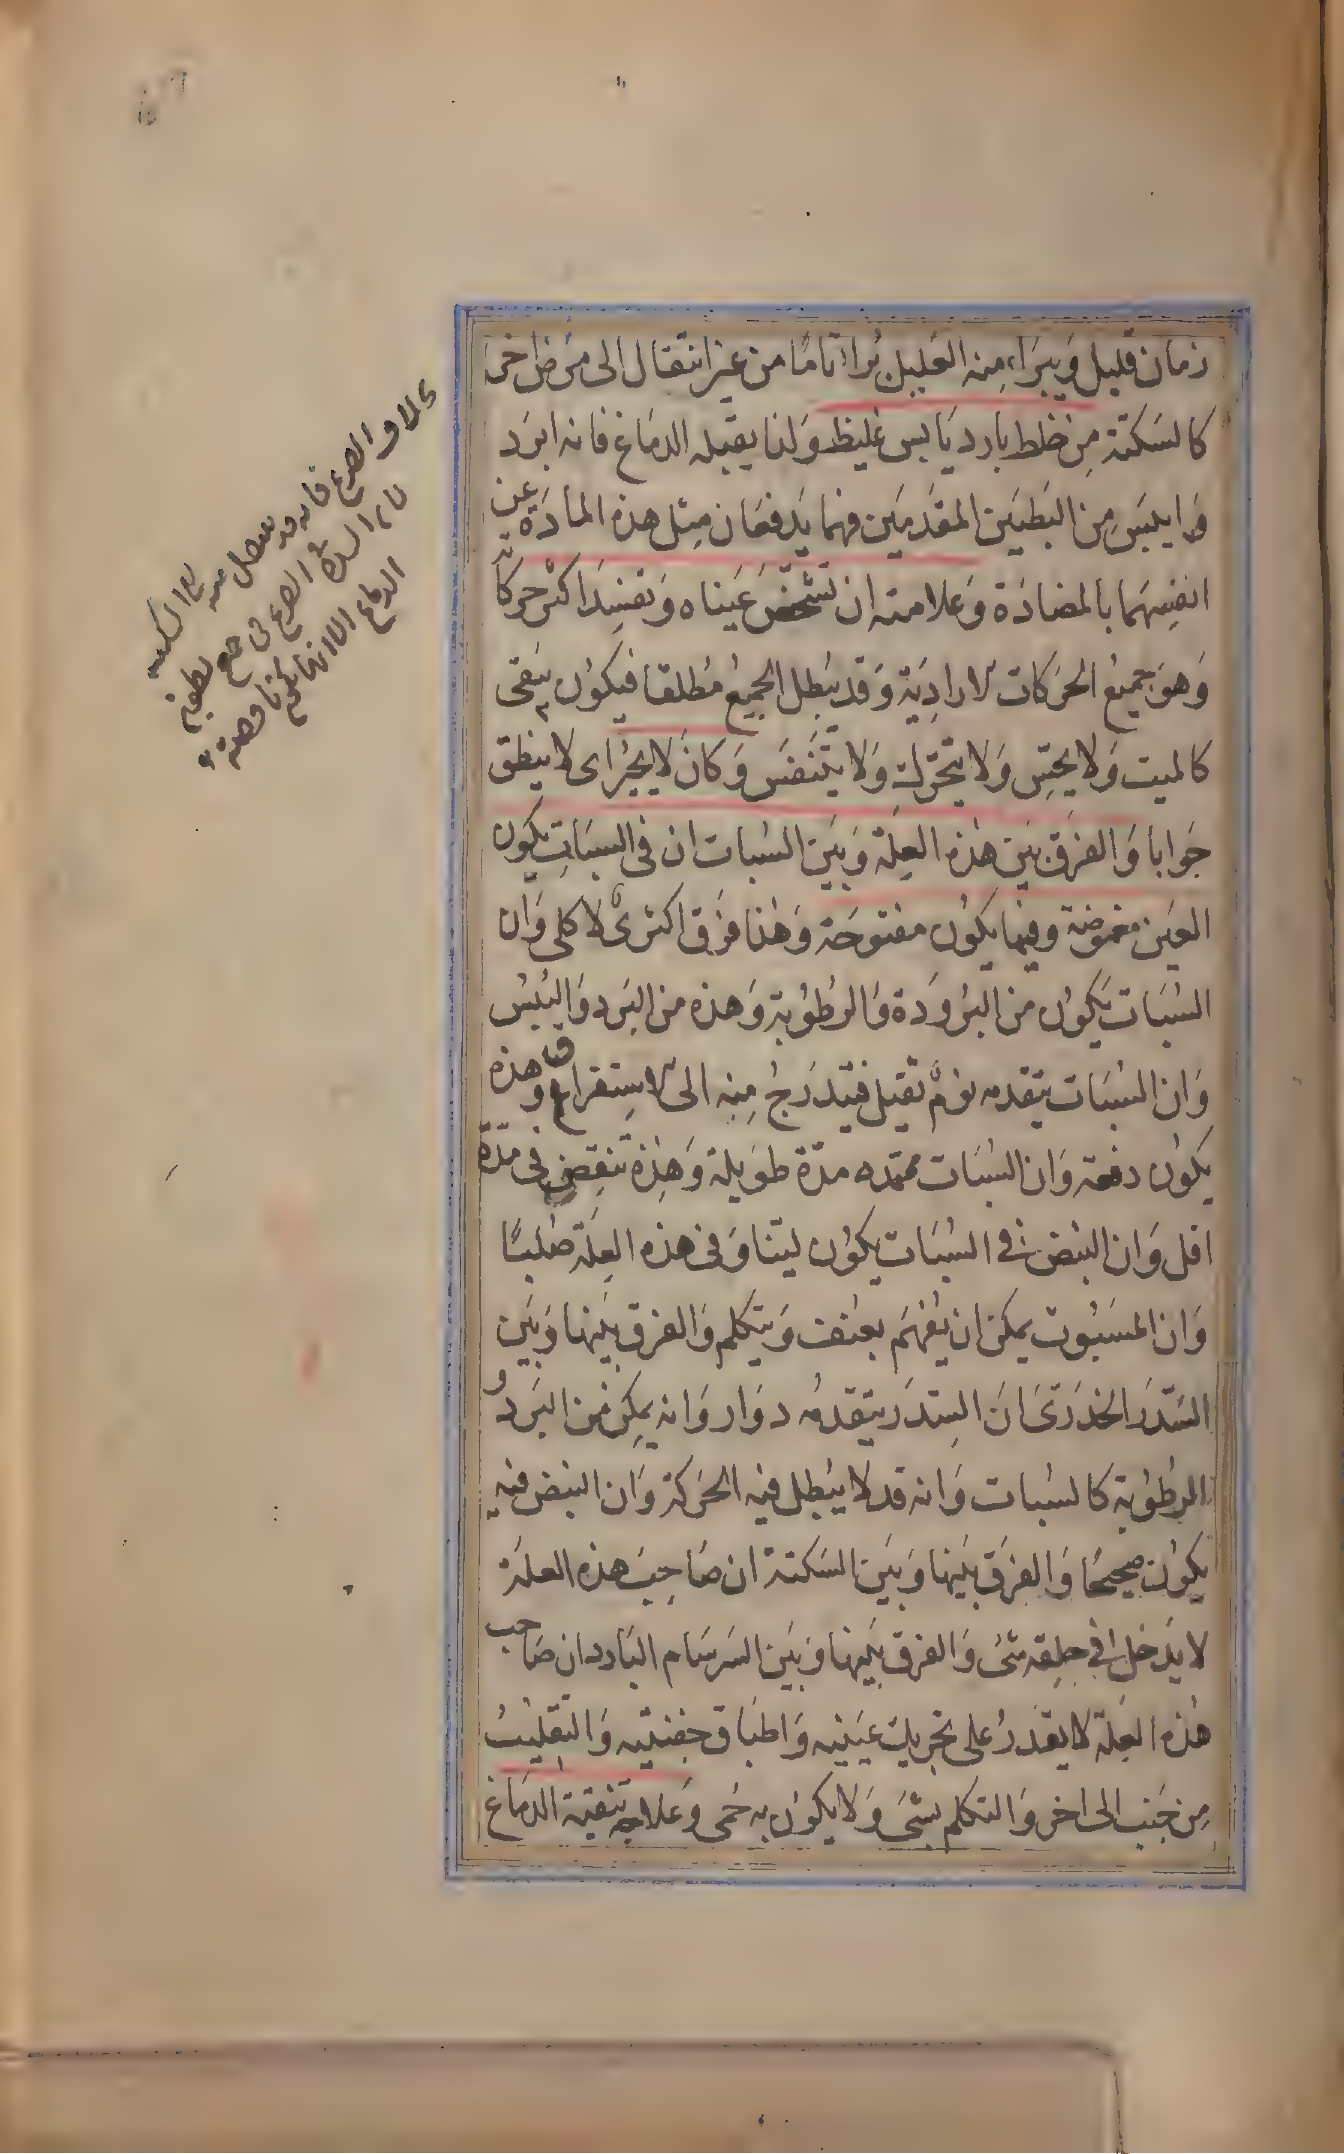 زمان قليل وَيبرَاء مِنه العَليل بُراءً تامًا من غير انتقال الى مرَض اخرَ
كالسَكتة مِن خلط بارد يَابس غليظ وَلذا يقبله الدمَاغ فانه ابرَد
وَايبَس مِن البَطنيَن المقدمَين فهما يَدفعَان مِثل هذه المادَة عن
انفسِهما بالمضادَة وَعلامته ان تشخصَ عَيناه وَتفسِدَ اكثر حركاته
وَهوَ جميع الحَركات الاراديَة وَقد يبطل الجميعُ مُطلقا فيكوُن يَبقى
كالميت وَلا يحِسّ وَلا يتحَّركَ وَلا يتنَفسَ وَكانَ لا يحيُر اى لا ينطق
جَوابا وَالفرَق بيَن هٰذه العِلة وَبيَن السُبات ان فى السبَاتِ يكون
العَين مغموضة وفيها يكوُن مفتوحَة وَهٰذا فرَق اكثرىٌ لا كلى وَان
السُبَات يَكوُن من البُروَدة وَالرطُوُبة وَهذه من البَرد وَاليُبسُ
وَان السُبَات يتقدمه نومٌ ثقيل فيَتدرَجُ مِنه الى الاستِغراق وَهذه
يكوُن دفعة وَان السُبَات ممتده مدّة طوَيلة وَهٰذِه تنقِضى فى مدّة
اقل وَان النبُض فى السُبَات يكوُن ليّنا وَفى هذه العِلة صُلبًا
وَان المسَبُوت يمكن ان يُفهَم بعُنف وَيتكلم وَالفرق بيَنها وَبَين
السَدَر الخدَرى انَ السِدَر يتقدمُه دوَار وَانه يمكِن من البَرد وُ
الرطُوُبة كالسُبات وَانه قد لا يبُطل فيه الحَركة وَان النبض فيه
يكوُن صحيحًا وَالفرَق بيَنها وَبيَن السَكتة ان صَاحِبَ هذه العلَة
لا يَدخل فى حلِقه شئ وَالفرق بيَنها وَبيَن السَرسَام البَارد ان صَاحب
هٰذه العِلة لا يقدَرُ على تحريك عيَنيه وَاطبَاق جفنيَه وَالتقليُبُ
مِن جَنب الى اخر وَالتكلم بشئَ وَلا يكوُن به حُمى وَعلاجه تنقية الدمَاغ
بخلاف الصرع فانه قد